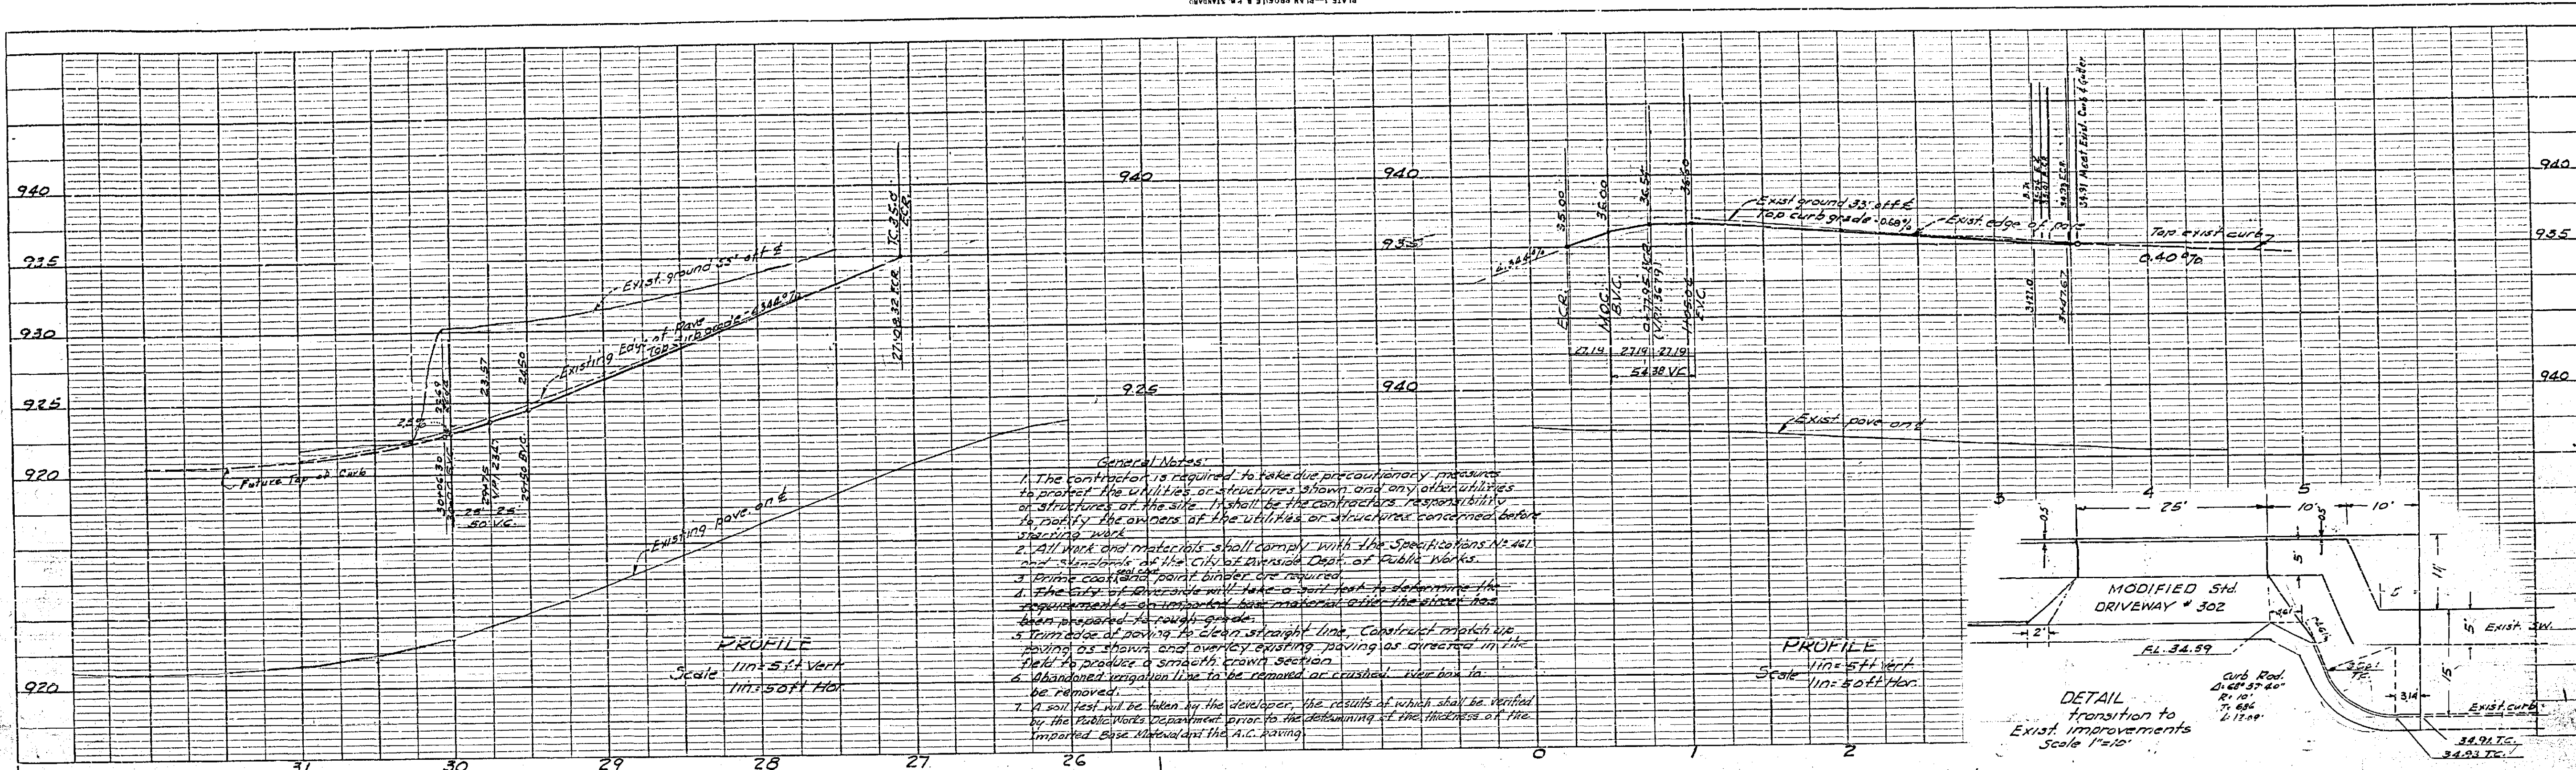 PLATE 1—PLAN PROFILE B.P.R. STANDARD
940
935
930
925
920
920
Exist. ground 33' off ℄
Existing Edge of Pave
Top curb grade - 4.344%
Future Top of Curb
2.5%
23.57
24.50
30+06.30
29+75
V.P.I. 23.47
29+50 B.V.C.
25' 25'
50' V.C.
T.C. 35.0
E.C.R.
27+08.32 E.C.R.
Existing pave. on ℄
PROFILE
Scale 1in=5ft Vert
1in=50ft Hor.
31 30 29 28 27 26
940
925
General Notes:
1. The contractor is required to take due precautionary measures
to protect the utilities or structures shown and any other utilities
or structures at the site. It shall be the contractors responsibility
to notify the owners of the utilities or structures concerned before
starting work
2. All work and materials shall comply with the Specifications No 461
and Standards of the City of Riverside Dept. of Public Works.
seal coat
3. Prime coat, and paint binder are required.
4. The City of Riverside will take a soil test to determine the
requirements on imported base material after the street has
been prepared to rough grade.
5. Trim edge of paving to clean straight line, Construct match up
paving as shown and overlay existing paving as directed in the
field to produce a smooth crown section
6. Abandoned irrigation line to be removed or crushed. Weir box to
be removed.
7. A soil test will be taken by the developer, the results of which shall be verified
by the Public Works Department prior to the determining of the thickness of the
Imported Base Material and the A.C. paving.
940
935
940
4.344%
35.00
E.C.R.
36.00
M.O.C.
B.V.C.
36.55
0+77.95 B.C.R.
(V.P.I. 36.79)
36.60
1+05.06
E.V.C.
27.19 27.19 27.19
54.38 V.C.
Exist ground 33' off ℄
Top curb grade - 0.68%
Exist. edge of pave
34.93 E.C.R.
34.91 Meet Exist. Curb & Gutter
3+47.67
Top exist curb
0.40%
940
935
940
Exist pave on ℄
PROFILE
Scale 1in=5ft Vert
1in=50ft Hor.
0 1 2
3 4 5
0.5' 25' 10' 10'
0.5'
5'
11'
MODIFIED Std.
DRIVEWAY # 302
2'
5'
5'
Exist. SW.
FL. 34.59
15'
3.14
Curb Rad.
Δ= 68° 57' 40"
R= 10'
T= 6.86
L= 12.09'
DETAIL
transition to
Exist. improvements
Scale 1"=10'
Exist. curb
34.91 T.C.
34.93 T.C.